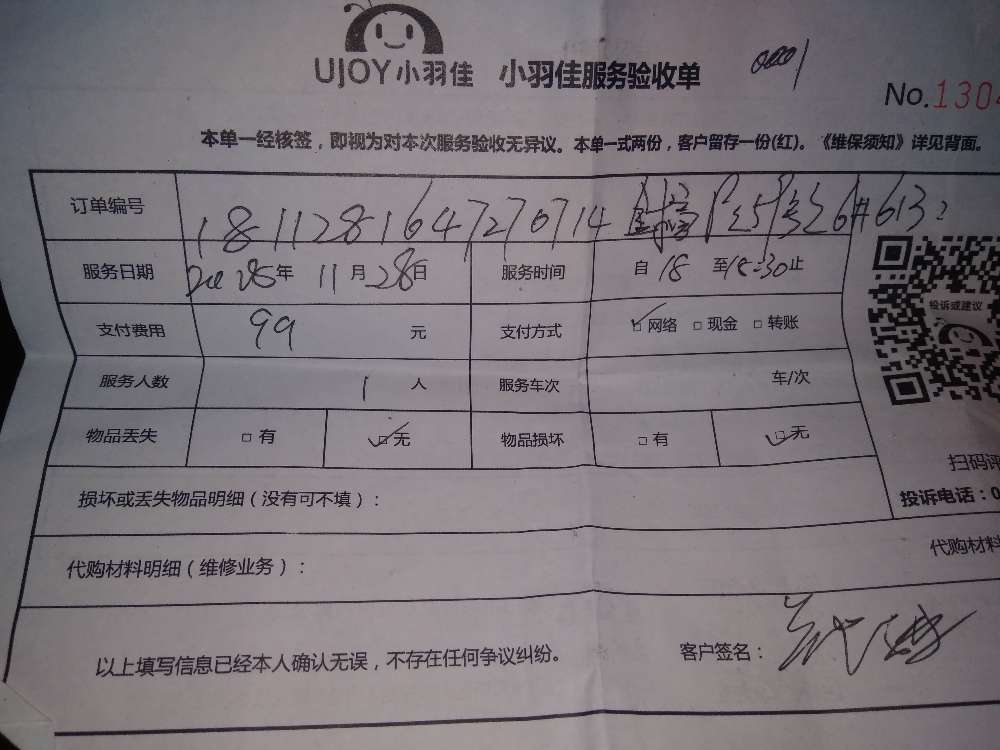 UJOY小羽佳 小羽佳服务验收单 0001
No.130
本单一经核签，即视为对本次服务验收无异议。本单一式两份，客户留存一份(红)。《维保须知》详见背面。
订单编号 1811281647270714 6#613
服务日期 年 11月28日 服务时间 自18至18:30止
支付费用 99 元 支付方式 □网络 □现金 □转账
服务人数 1 人 服务车次 车/次
物品丢失 □有 □无 物品损坏 □有 □无
投诉或建议
扫码评
投诉电话：0
损坏或丢失物品明细（没有可不填）：
代购材料明细（维修业务）： 代购材料
以上填写信息已经本人确认无误，不存在任何争议纠纷。 客户签名：